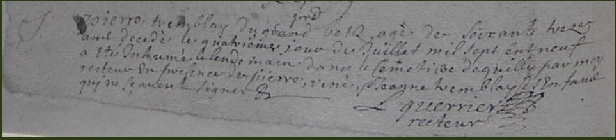 pierre tremblay du grand betz agé de soixante treze
ans decedé le quatrieme jour de Juillet mil sept cent neuf
a ete Inhumé le lendemain dans le Cemetiere de quilly par moy
recteur En presence de pierre, rené, Jeanne tremblay ses Enfans
qui ne scavent signer
L guerrier
recteur